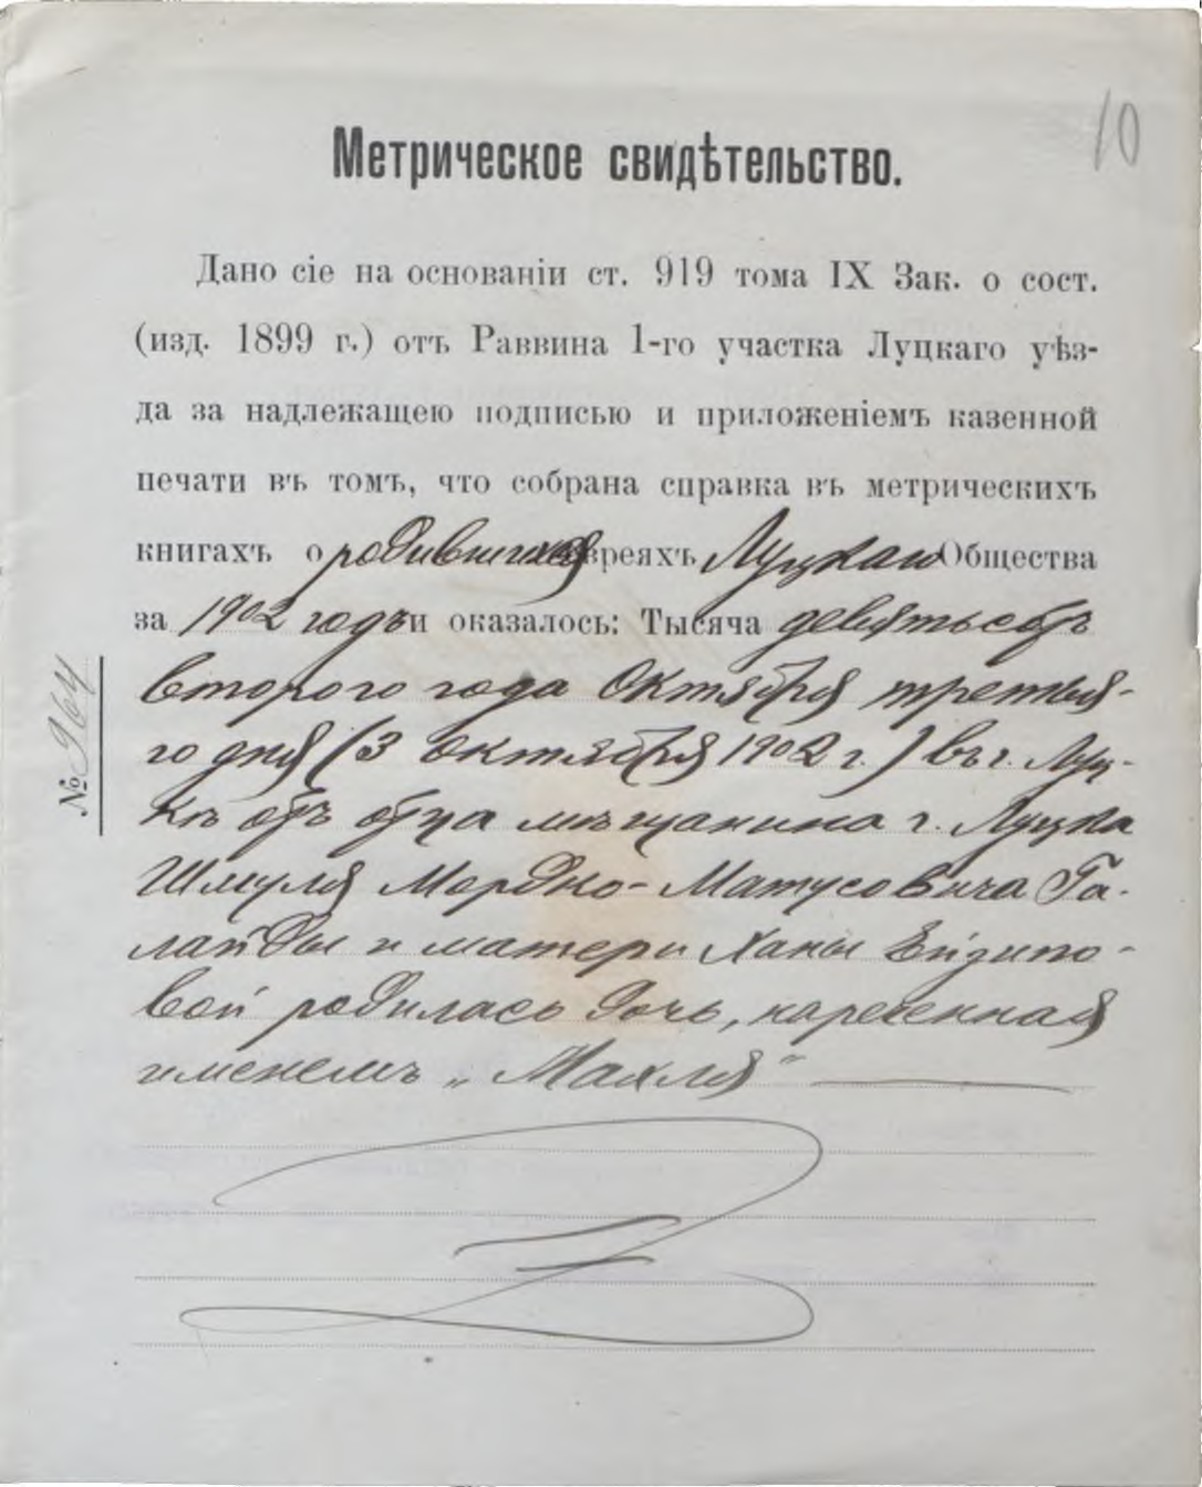 10
Метрическое свидѣтельство.
Дано сіе на основаніи ст. 919 тома IX Зак. о сост.
(изд. 1899 г.) отъ Раввина 1-го участка Луцкаго уѣз-
да за надлежащею подписью и приложеніемъ казенной
печати въ томъ, что собрана справка въ метрическихъ
книгахъ о родившихся евреяхъ Луцкаго Общества
за 1902 годъ и оказалось: Тысяча девятьсотъ
второго года Октября третья-
го дня (3 октября 1902 г.) въ г. Луц-
кѣ отъ отца мѣщанина г. Луцка
Шмуля Мордко-Матусовича Га-
лайды и матери Ханы
вой родилась дочь, нареченная
именемъ „Махля"
№ 964